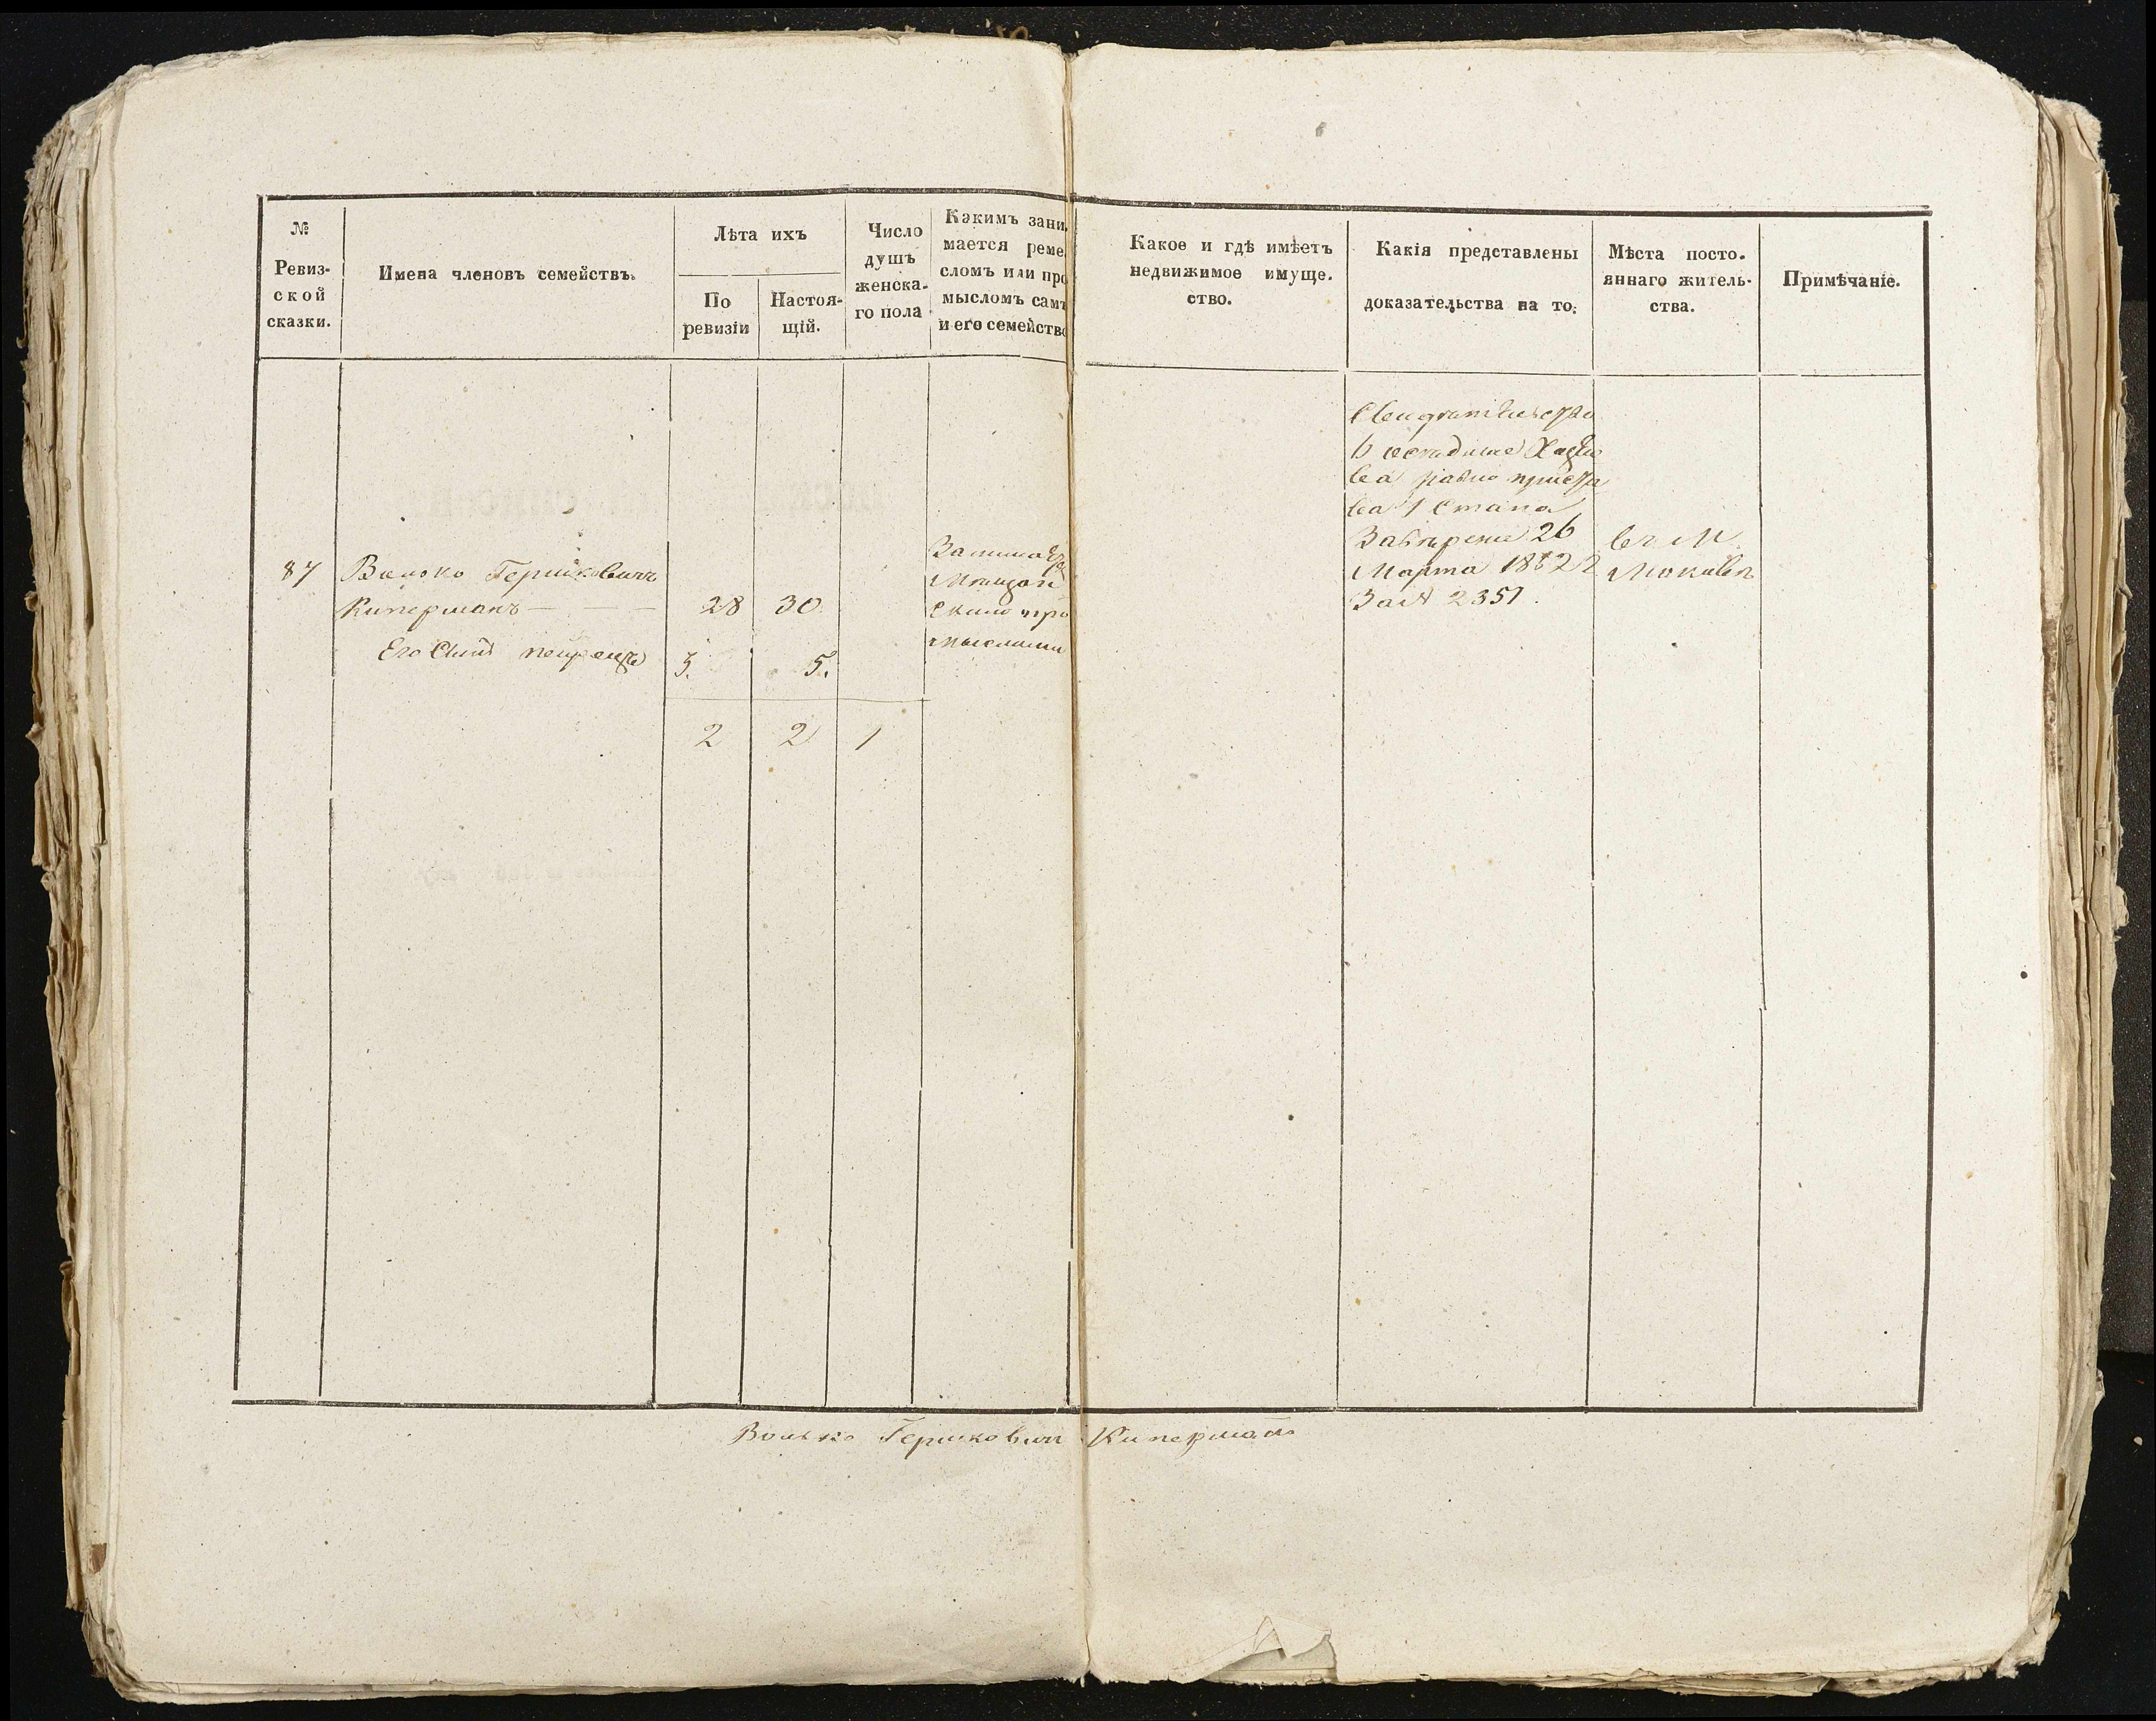 №
Ревиз-
ской
сказки.
Имена членовъ семействъ.
Лѣта ихъ
По
ревизіи
Настоя-
щій.
Число
душъ
женска-
го пола
Какимъ зани
мается реме
сломъ или про
мысломъ самъ
и его семейство
Какое и гдѣ имѣетъ
недвижимое имуще-
ство.
Какія представлены
доказательства на то.
Мѣста посто-
яннаго житель-
ства.
Примѣчаніе.
87
Волько Гершковичъ
Киперманъ
28
30
Его Сынъ
5.
2
2
1
Мѣщан
скимъ про
мысломъ
Свидѣтельство
равно приста
ва 1 Стана
26
Марта
За № 2351.
въ М.
Волько Гершковичъ Киперманъ